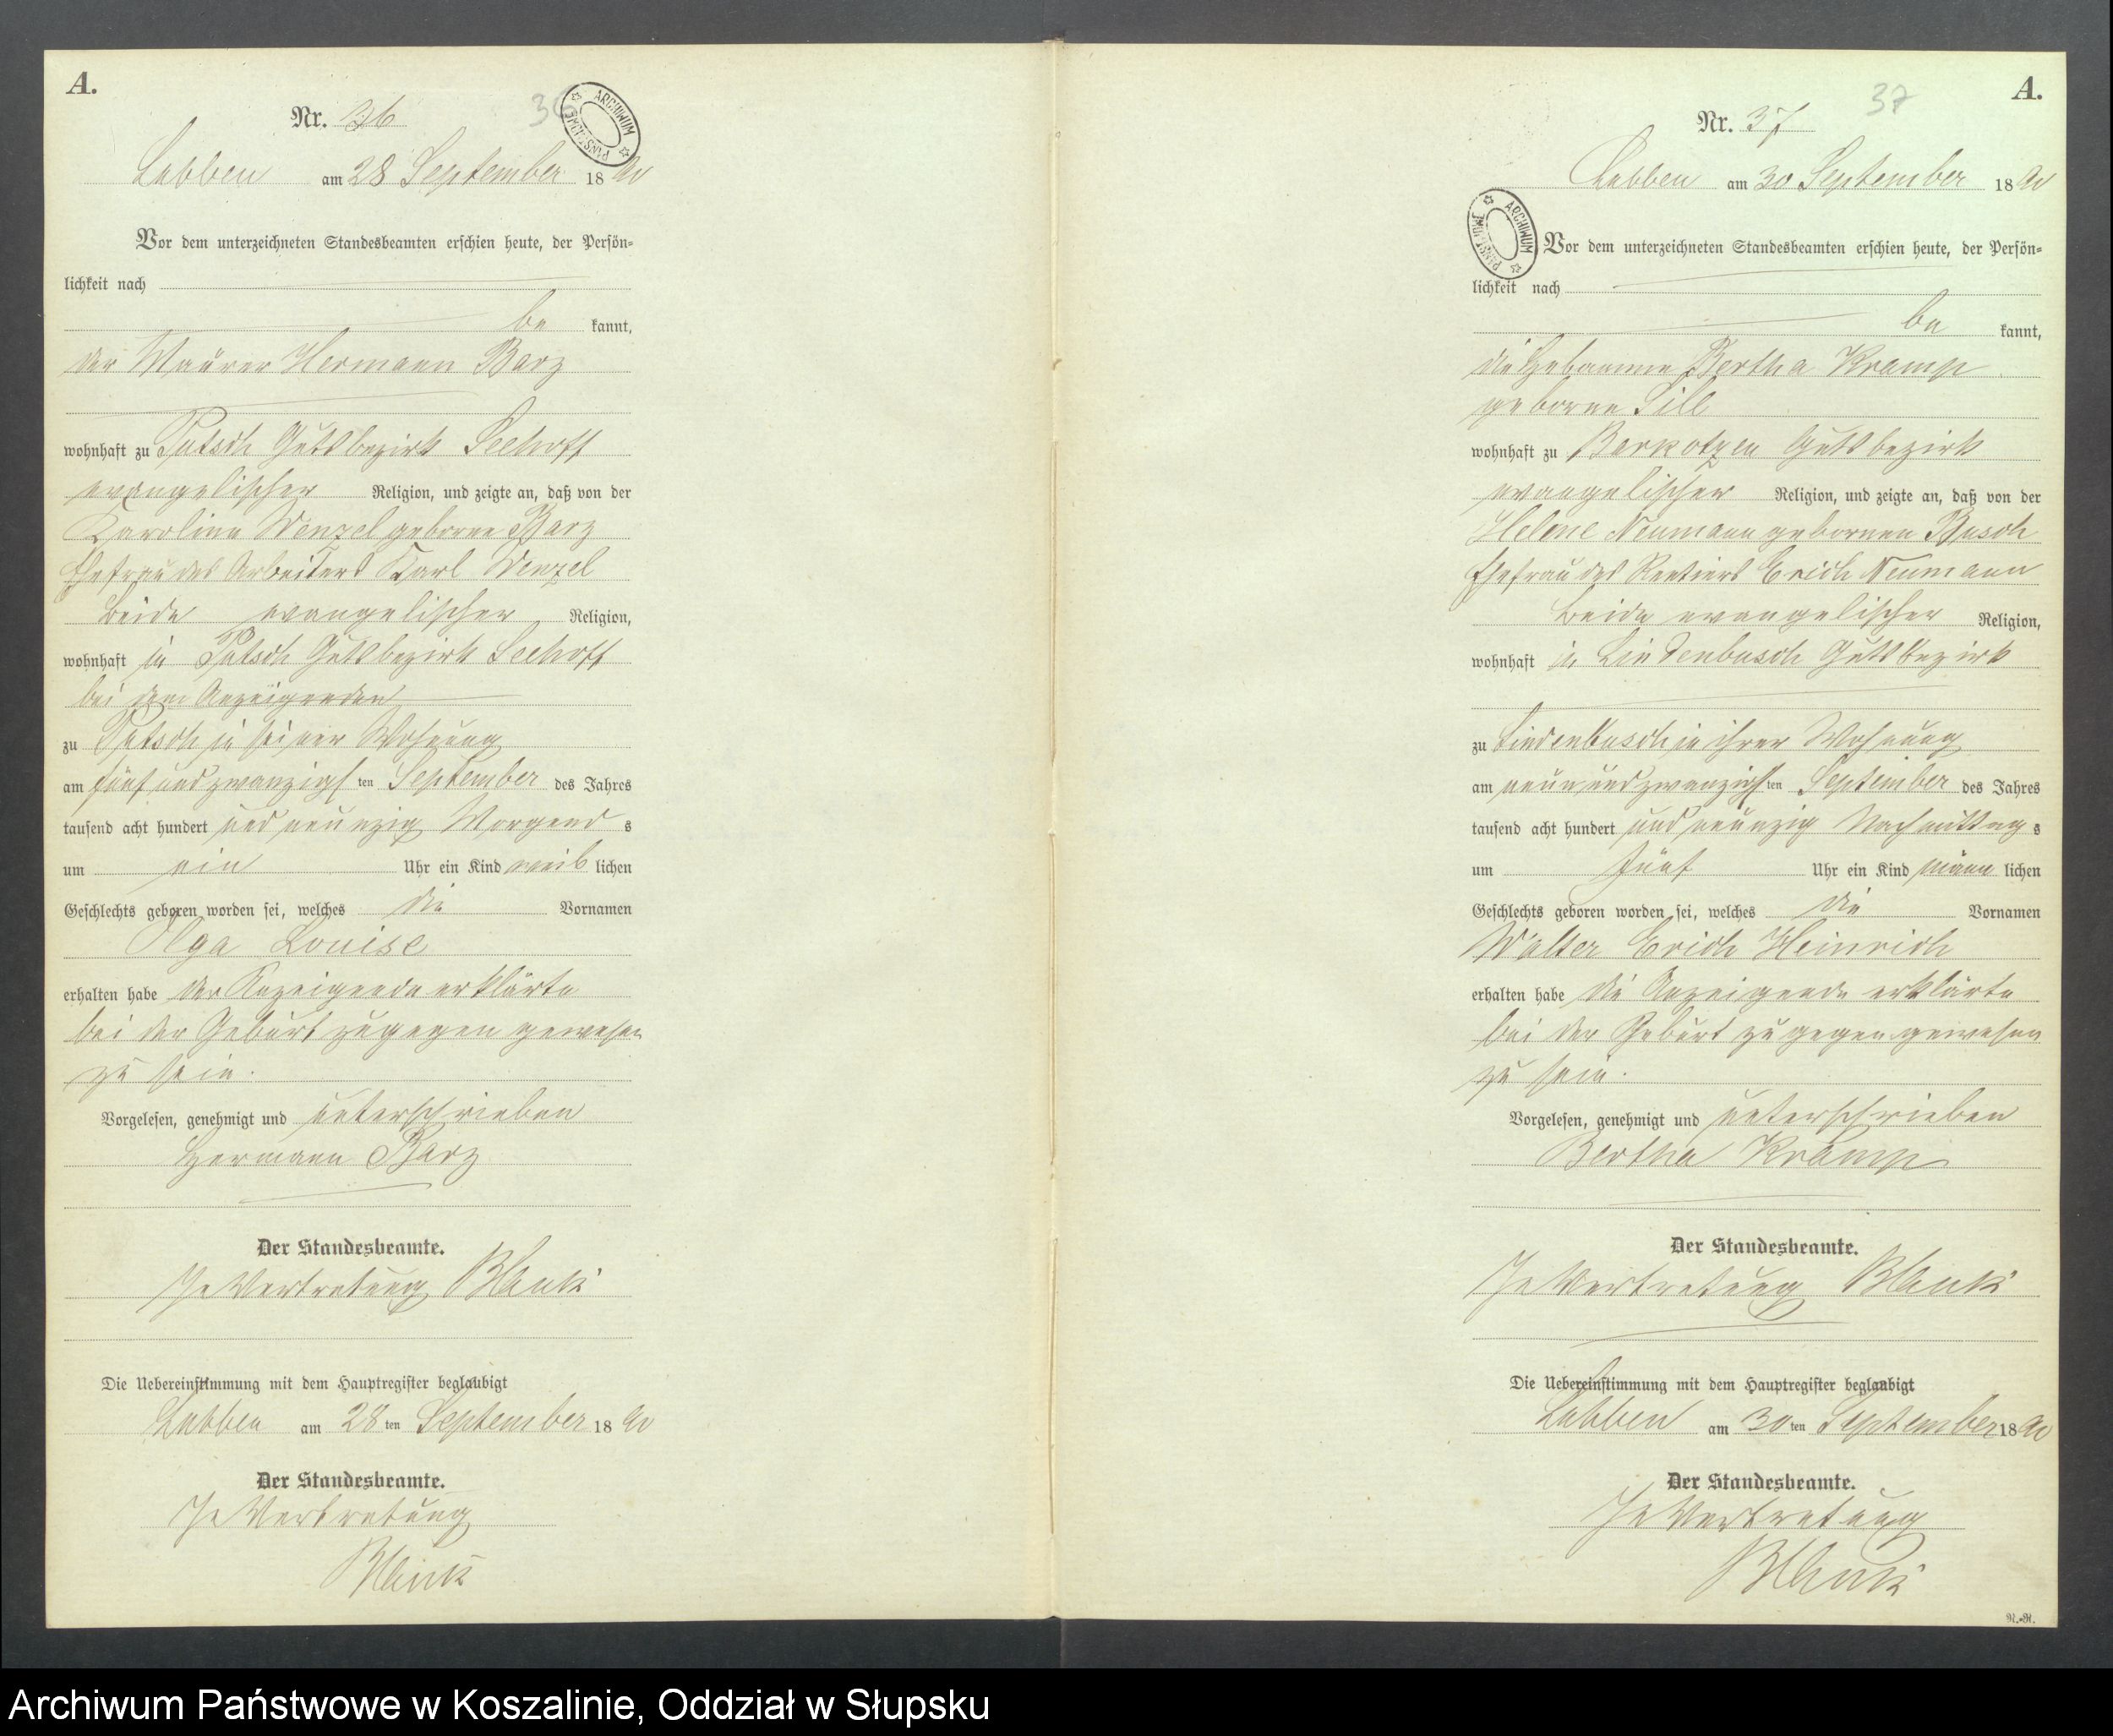 A.
Nr. 36
36
ARCHIWUM PAŃSTWOWE
Labben am 28 September 1890
Vor dem unterzeichneten Standesbeamten erschien heute, der Persön-
lichkeit nach
be kannt,
der Maurer Hermann Barz
wohnhaft zu Putsch Gutsbezirk Seehoff
evangelischer Religion, und zeigte an, daß von der
Karoline Wenzel geborne Barz
Ehefrau des Arbeiters Karl Wenzel
beide evangelischer Religion,
wohnhaft in Putsch Gutsbezirk Seehoff
bei dem Anzeigenden
zu Putsch in seiner Wohnung
am fünf und zwanzigsten September des Jahres
tausend acht hundert und neunzig Morgends
um ein Uhr ein Kind weiblichen
Geschlechts geboren worden sei, welches die Vornamen
Olga Louise
erhalten habe der Anzeigende erklärte
bei der Geburt zugegen gewesen
zu sein.
Vorgelesen, genehmigt und unterschrieben
Hermann Barz
Der Standesbeamte.
In Vertretung Blank
Die Uebereinstimmung mit dem Hauptregister beglaubigt
Labben am 28ten September 1890
Der Standesbeamte.
In Vertretung
Blank
A.
Nr. 37
37
ARCHIWUM PAŃSTWOWE
Labben am 30 September 1890
Vor dem unterzeichneten Standesbeamten erschien heute, der Persön-
lichkeit nach
be kannt,
die Hebamme Bertha Kramp
geborne Till
wohnhaft zu Barkotzen Gutsbezirk
evangelischer Religion, und zeigte an, daß von der
Helene Neumann gebornen Busch
Ehefrau des Rentiers Erich Neumann
beide evangelischer Religion,
wohnhaft in Lindenbusch Gutsbezirk
zu Lindenbusch in ihrer Wohnung
am neun und zwanzigsten September des Jahres
tausend acht hundert und neunzig Nachmittags
um fünf Uhr ein Kind männlichen
Geschlechts geboren worden sei, welches die Vornamen
Walter Erich Heinrich
erhalten habe die Anzeigende erklärte
bei der Geburt zugegen gewesen
zu sein.
Vorgelesen, genehmigt und unterschrieben
Bertha Kramp
Der Standesbeamte.
In Vertretung Blank
Die Uebereinstimmung mit dem Hauptregister beglaubigt
Labben am 30ten September 1890
Der Standesbeamte.
In Vertretung
Blank
R.-R.
Archiwum Państwowe w Koszalinie, Oddział w Słupsku